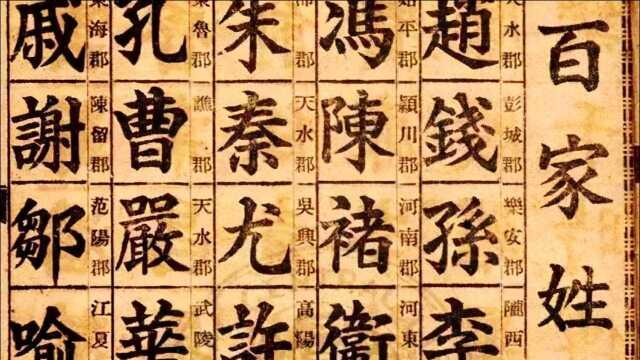 百家姓
天水郡 彭城郡 樂安郡 隴西
趙錢孫李
始平郡 潁川郡 河南郡 河東
馮陳褚衛
郡 天水郡 吳興郡 高陽
朱秦尤許
東魯郡 譙郡 天水郡 武陵
孔曹嚴華
東海郡 陳留郡 范陽郡 江夏
戚謝鄒喻